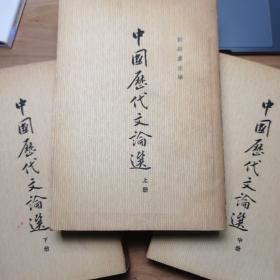 郭紹虞主編
中國歷代文論選
上册
中國歷代文論選
下册
中國歷代文論選
中册